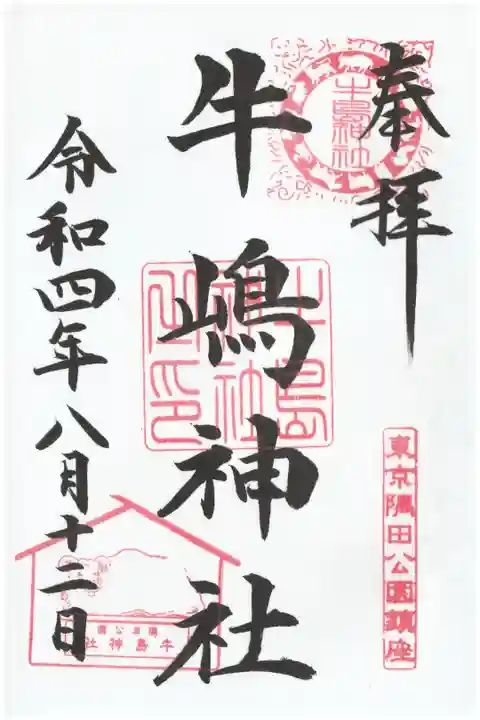 奉拝
牛島神社
東京隅田公園鎮座
牛嶋神社
牛島神社之印
隅田公園
牛島神社
令和四年八月十二日